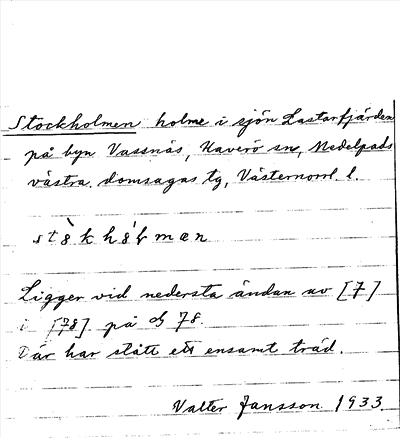 Stockholmen holme i sjön Lastarfjärden
på byn Vassnäs, Haverö sn, Medelpads
västra domsagas tg, Västernorrl. l.
Ligger vid nedersta ändan av [7]
i [78] på 78.
Där har stått ett ensamt träd.
Valter Jansson 1933.